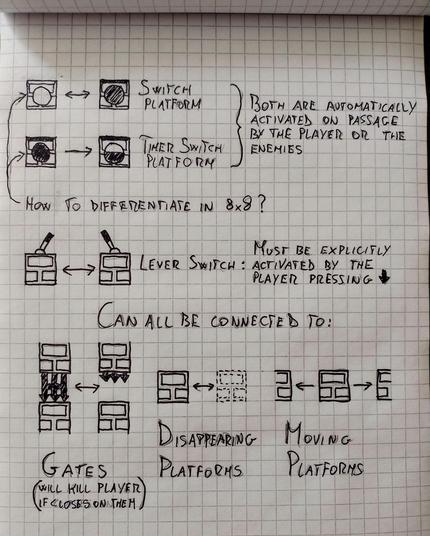 SWITCH
PLATFORM
TIMER SWITCH
PLATFORM
BOTH ARE AUTOMATICALLY
ACTIVATED ON PASSAGE
BY THE PLAYER OR THE
ENEMIES
HOW TO DIFFERENTIATE IN 8x8?
LEVER SWITCH:
MUST BE EXPLICITLY
ACTIVATED BY THE
PLAYER PRESSING ↓
CAN ALL BE CONNECTED TO:
GATES
(WILL KILL PLAYER
IF CLOSES ON THEM)
DISAPPEARING
PLATFORMS
MOVING
PLATFORMS